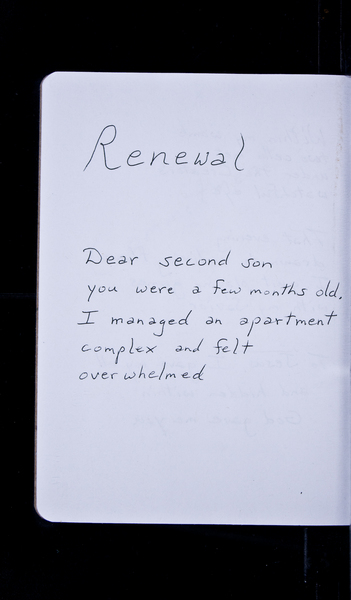 Renewal
Dear second son
you were a few months old.
I managed an apartment
complex and felt
overwhelmed